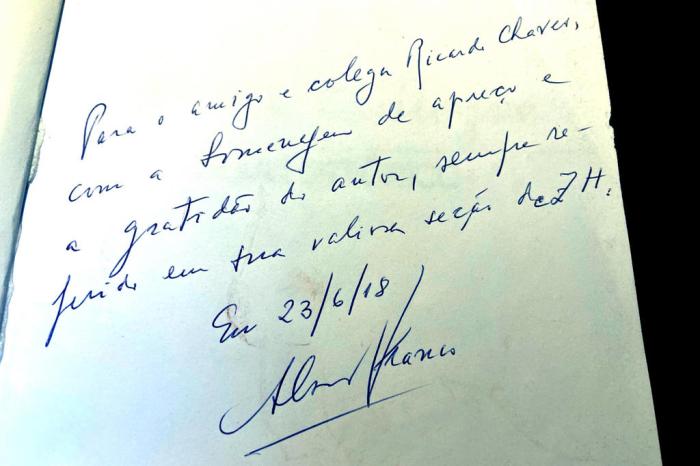 Para o amigo e colega Ricardo Chaves,
com a homenagem de apreço e
a gratidão do autor, sempre re-
ferido em sua valiosa seção de ZH.
Em 23/6/18
Franco